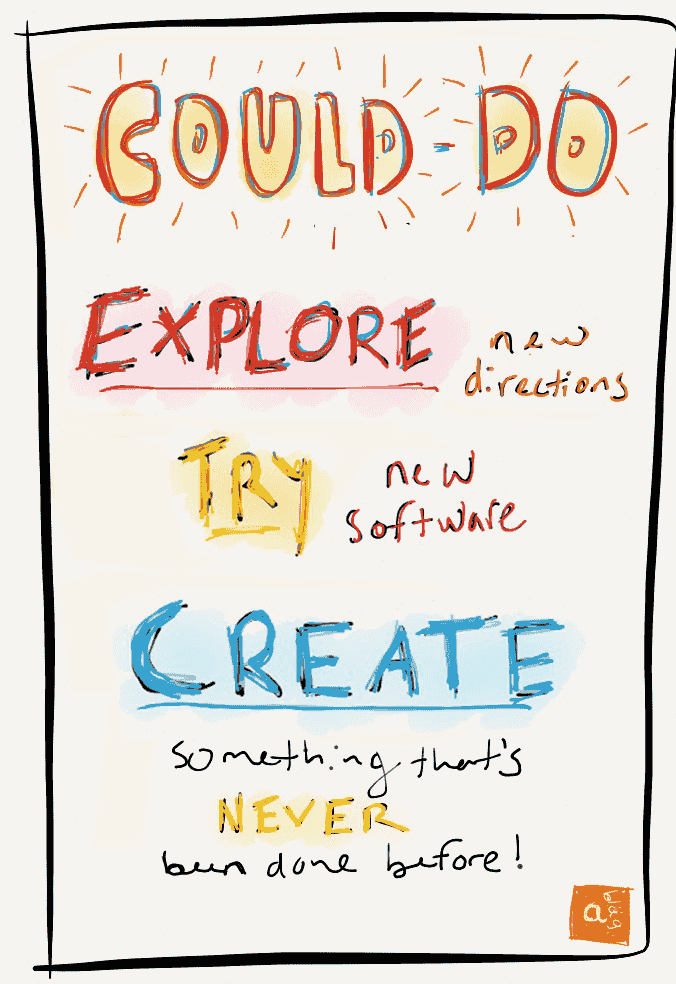 COULD-DO
EXPLORE new
directions
TRY new
software
CREATE
something that's
NEVER
been done before!
a blog